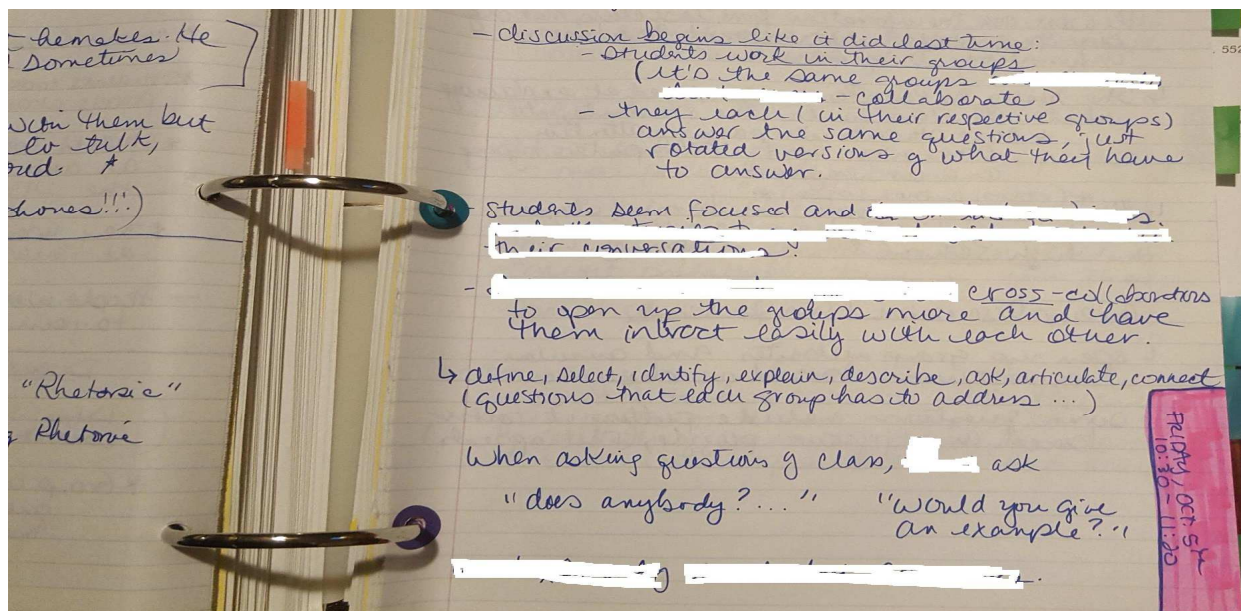 hemakes. He
sometimes
with them but
to talk,
hones!!!)
"Rhetorsic"
Rhetoric
- discussion begins like it did last time:
- Students work in their groups
(it's the same groups
- collaborate)
- they each (in their respective groups)
answer the same questions, just
rotated versions of what they have
to answer.
- Students seem focused and
their conversations.
- cross-collaborations
to open up the groups more and have
them intract easily with each other.
↳ define, select, idntify, explain, describe, ask, articulate, connect
(questions that each group has to address ...)
When asking questions of class, ask
"does anybody?..." "would you give
an example?"
FRIDAY, OCT. 5th
10:30 - 11:20
552